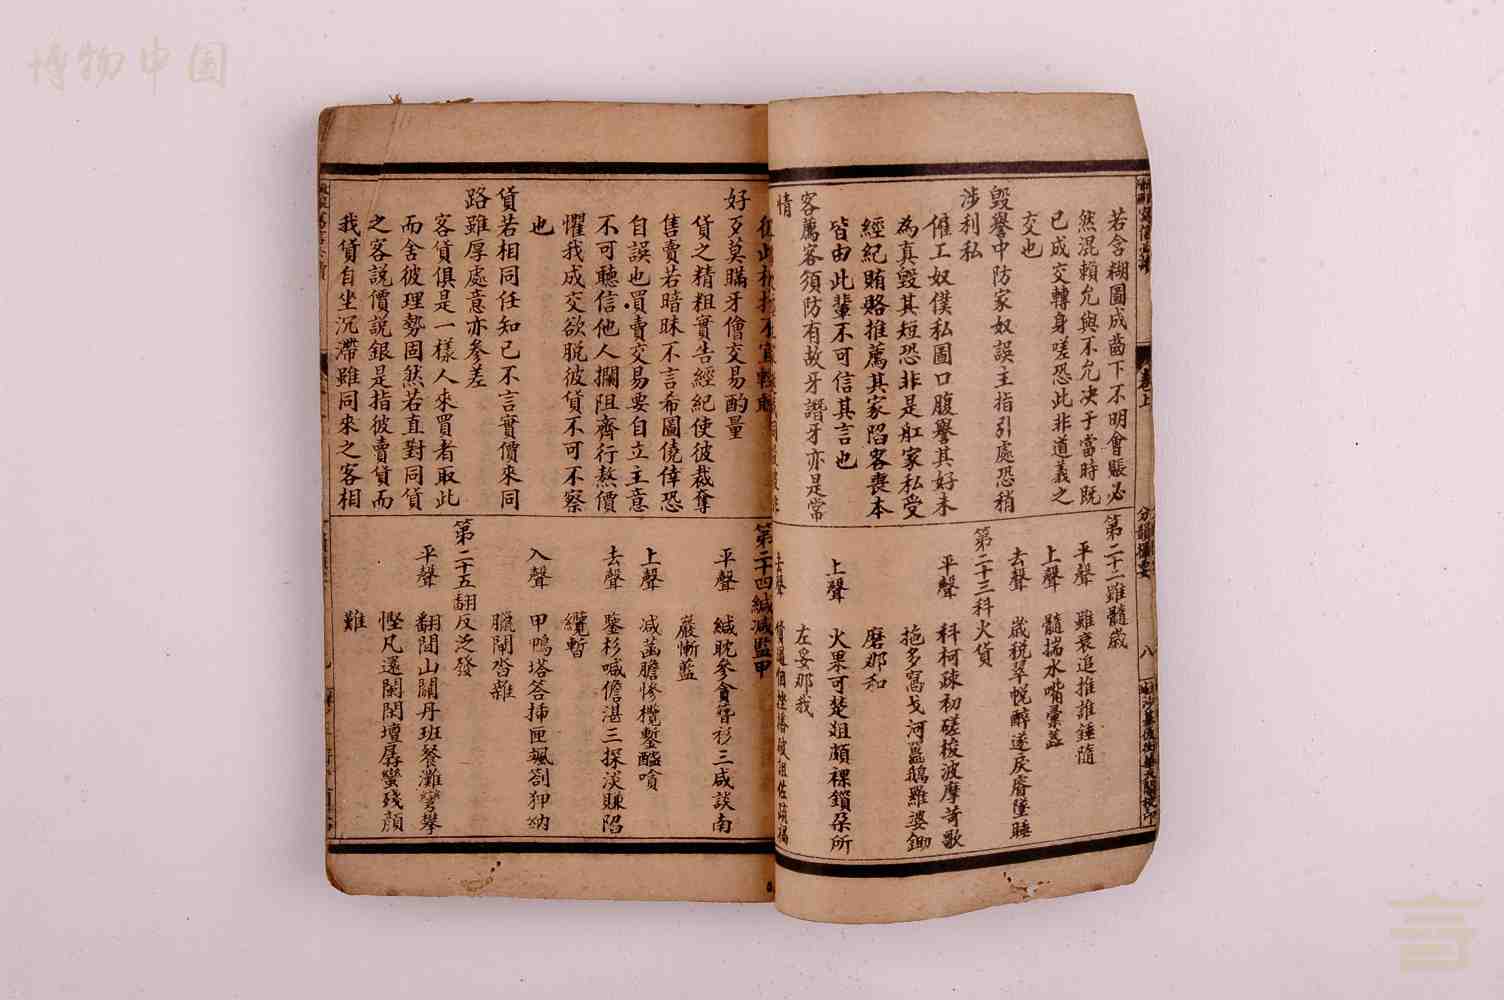 博物中国
若含糊圖成啚下不明會賬必
然混賴允與不允决于當時既
已成交轉身嗟恐此非道義之
交也
毀譽中防家奴誤主指引處恐稍
涉利私
僱工奴僕私圖口腹譽其好未
為真毀其短恐非是舡家私受
經紀賄賂推薦其家陷客喪本
皆由此輩不可信其言也
客薦客須防有故牙譖牙亦是常
情
好歹莫瞞牙儈交易酌量
貨之精粗實告經紀使彼裁奪
售賣若暗昧不言希圖僥倖恐
自誤也買賣交易要自立主意
不可聽信他人攔阻齊行熬價
懼我成交欲脱彼貨不可不察
也
貨若相同任知己不言實價來同
路雖厚處意亦參差
客貨俱是一樣人來買者取此
而舍彼理勢固然若直對同貨
之客説價説銀是指彼賣貨而
我貨自坐沉滯雖同來之客相
卷上
分韻撮要
八
第二十二雖髓歲
平聲 雖衰追推誰錘隨
上聲 髓揣水嘴蘂蕊
去聲 歲税翠帨醉遂戾睿墜睡
第二十三科火貨
平聲 科柯疎初磋梭波摩苛歌
拖多窩戈河囂鵝羅婆鋤
磨那和
上聲 火果可楚俎頗裸鎖朶所
左妥那我
去聲
第二十四緘減監甲
平聲 緘眈參貪簪衫三咸談南
嚴慚藍
上聲 減菡膽慘欖鏨醓嗿
去聲 鑒杉喊儋湛三探淡賺陷
纜暫
入聲 甲鴨塔答插匣颯劄狎納
臘閘沓雜
第二十五翻反泛發
平聲 翻間山關丹班餐灘彎攀
慳凡還闌閑壇孱蠻殘顔
難